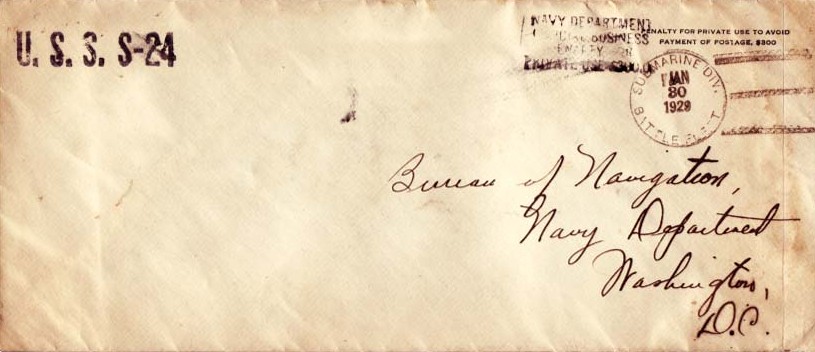 U. S. S. S-24
NAVY DEPARTMENT
BUSINESS
PRIVATE USE $300.
PENALTY FOR PRIVATE USE TO AVOID
PAYMENT OF POSTAGE, $300
SUBMARINE DIV.
JAN
30
1929
BATTLE FLEET
Bureau of Navigation,
Navy Department
Washington,
D.C.